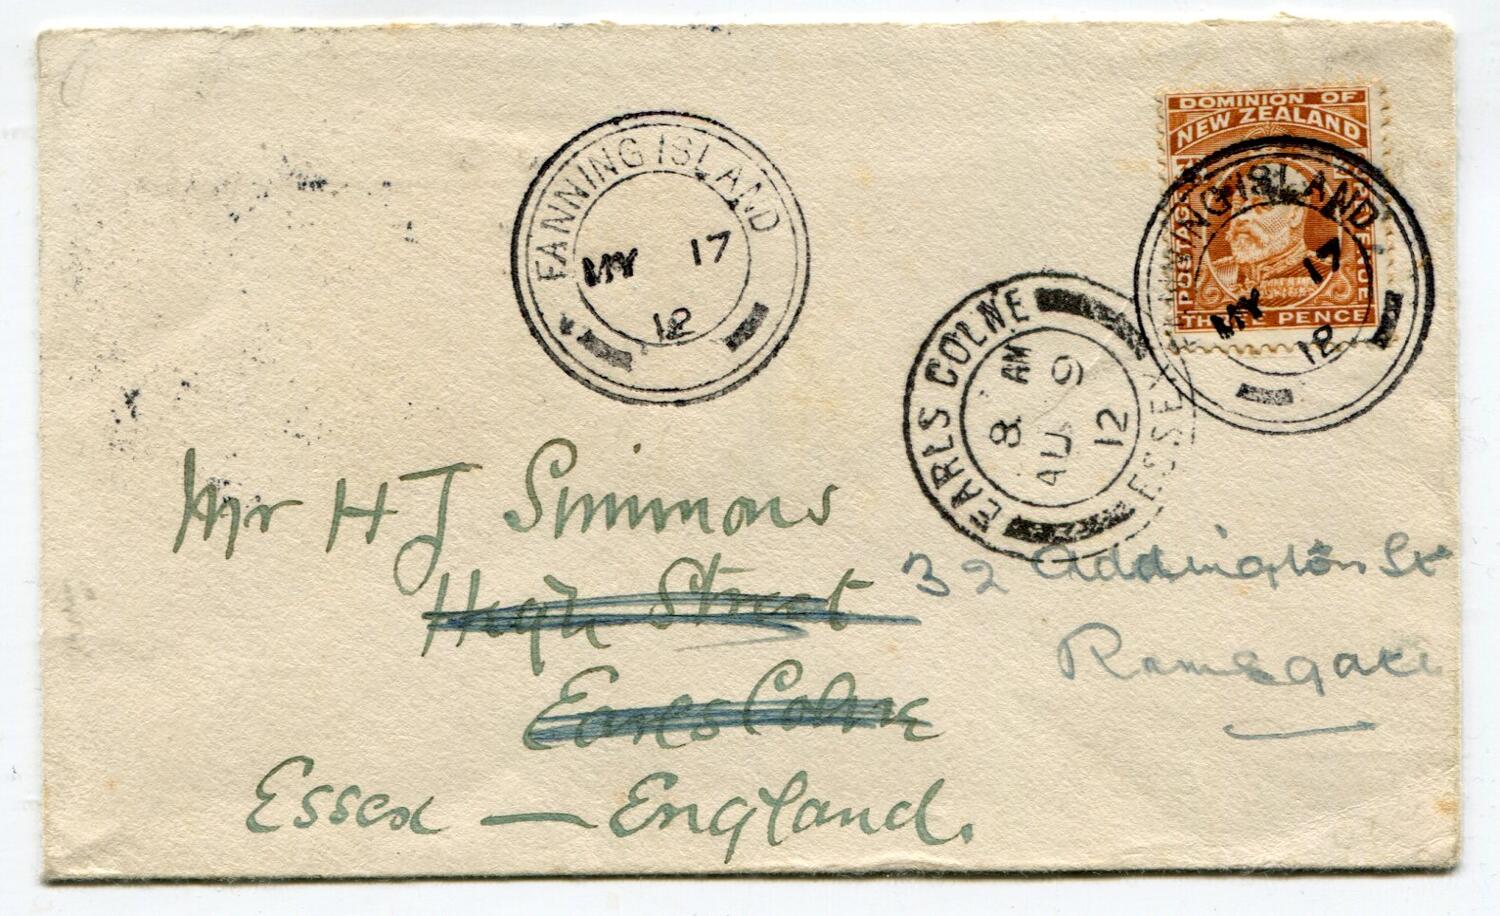 DOMINION OF
NEW ZEALAND
POSTAGE
THREE PENCE
FANNING ISLAND
MY 17
12
FANNING ISLAND
MY 17
12
EARLS COLNE
8 AM
AU 9
12
ESSEX
Mr H J Simmons
High Street
Earls Colne
Essex — England.
32 Addington St
Ramsgate